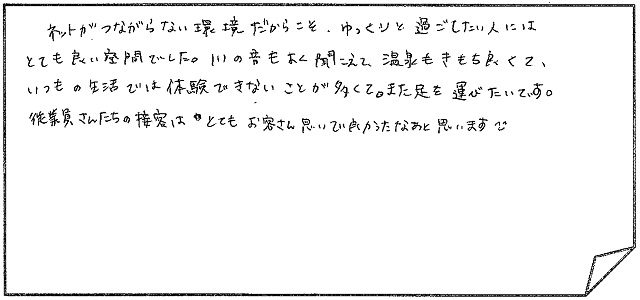 ネットがつながらない環境だからこそ、ゆっくりと過ごしたい人には
とても良い空間でした。川の音もよく聞こえて、温泉もきもち良くて、
いつもの生活では体験できないことが多くて。また足を運びたいです。
従業員さんたちの接客はとてもお客さん思いで良かったなあと思います